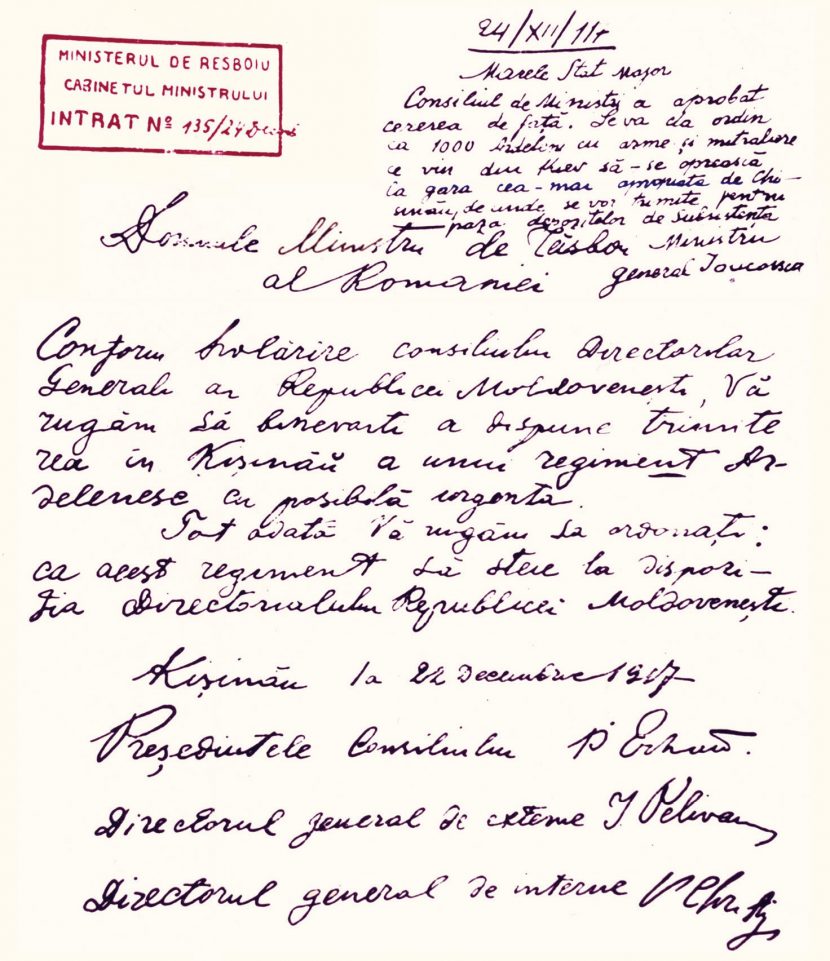 MINISTERUL DE RESBOIU
CABINETUL MINISTRULUI
INTRAT Nº 135/24 Dec
24/XII/917
Marele Stat Major
Consiliul de Miniștri a aprobat
cererea de față. Se va da ordin
ca 1000 Ardeleni cu arme și mitraliere
ce vin din Kiev să-se oprească
la gara cea-mai apropiată de Chi-
sinău, de unde se vor trimite pentru
paza depozitelor de Subsistența
Ministru
general Iancovescu
Domnule Ministru de Răsboi
al Romaniei
Conform hotărîre consiliului Directorilor
Generali ai Republicei Moldovenești, Vă
rugăm să binevoiti a dispune trimite
rea in Kișinău a unui regiment Ar-
delenesc cu posibilă urgenta.
Tot odată Vă rugăm sa ordonați:
ca acest regiment să steie la dispozi-
ția Directorialului Republicei Moldovenești.
Kișinău la 22 Decembrie 1917
Președintele Consiliului P Erhan.
Directorul general de externe I Pelivan
Directorul general de interne V Chr